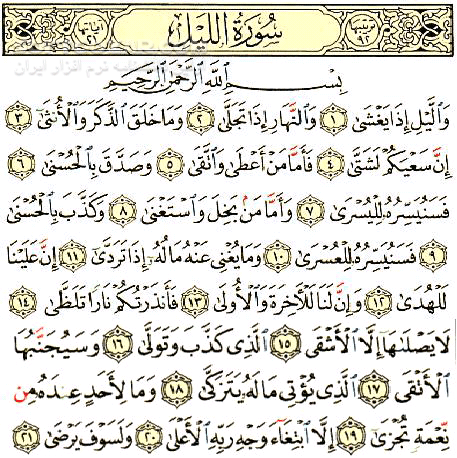 ترتيبها ٩٢ سُورَةُ اللَّيْلِ آياتها ٢١
بِسْمِ اللَّهِ الرَّحْمَٰنِ الرَّحِيمِ
وَالَّيْلِ إِذَا يَغْشَىٰ ١ وَالنَّهَارِ إِذَا تَجَلَّىٰ ٢ وَمَا خَلَقَ الذَّكَرَ وَالْأُنثَىٰ ٣
إِنَّ سَعْيَكُمْ لَشَتَّىٰ ٤ فَأَمَّا مَنْ أَعْطَىٰ وَاتَّقَىٰ ٥ وَصَدَّقَ بِالْحُسْنَىٰ ٦
فَسَنُيَسِّرُهُ لِلْيُسْرَىٰ ٧ وَأَمَّا مَنْ بَخِلَ وَاسْتَغْنَىٰ ٨ وَكَذَّبَ بِالْحُسْنَىٰ
٩ فَسَنُيَسِّرُهُ لِلْعُسْرَىٰ ١٠ وَمَا يُغْنِي عَنْهُ مَالُهُ إِذَا تَرَدَّىٰ ١١ إِنَّ عَلَيْنَا
لَلْهُدَىٰ ١٢ وَإِنَّ لَنَا لَلْآخِرَةَ وَالْأُولَىٰ ١٣ فَأَنذَرْتُكُمْ نَارًا تَلَظَّىٰ ١٤
لَا يَصْلَاهَا إِلَّا الْأَشْقَى ١٥ الَّذِي كَذَّبَ وَتَوَلَّىٰ ١٦ وَسَيُجَنَّبُهَا
الْأَتْقَى ١٧ الَّذِي يُؤْتِي مَالَهُ يَتَزَكَّىٰ ١٨ وَمَا لِأَحَدٍ عِندَهُ مِن
نِّعْمَةٍ تُجْزَىٰ ١٩ إِلَّا ابْتِغَاءَ وَجْهِ رَبِّهِ الْأَعْلَىٰ ٢٠ وَلَسَوْفَ يَرْضَىٰ ٢١